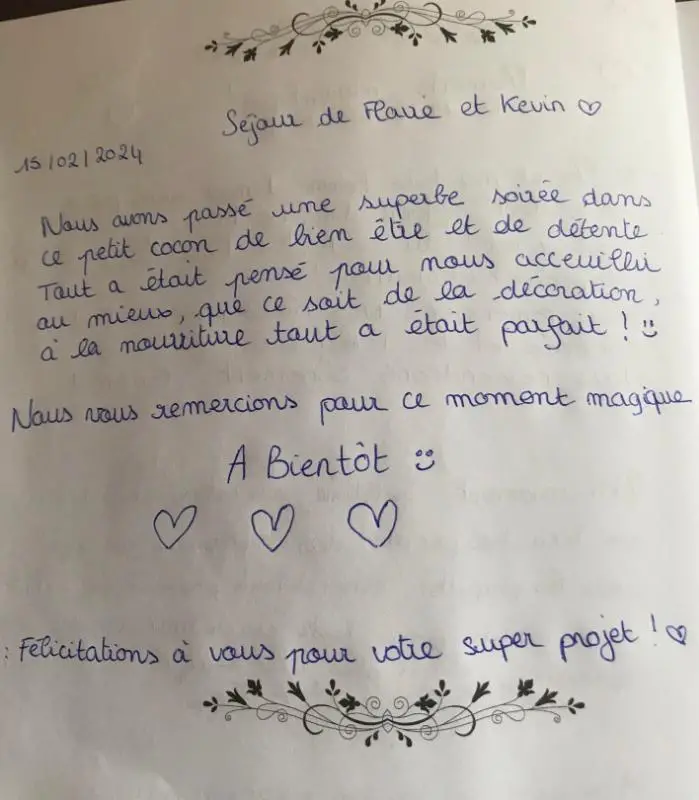 Séjour de Flavie et Kevin ♡
15/02/2024
Nous avons passé une superbe soirée dans
ce petit cocon de bien être et de détente
Tout a était pensé pour nous acceuilli
au mieux, que ce soit de la décoration,
à la nourriture tout a était parfait ! :)
Nous vous remercions pour ce moment magique
A Bientôt :)
♡ ♡ ♡
: Félicitations à vous pour votre super projet ! ♡